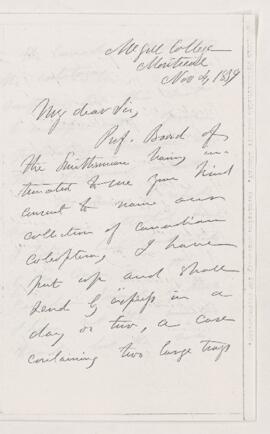 McGill College
Montreal
Nov 4, 18
My dear Sir,
Prof. Baird of
the Smithsonian having in-
timated to me your kind
consent to name our
collection of Canadian
coleoptera, I have
put up and shall
send by express in a
day or two, a case
containing two large trays